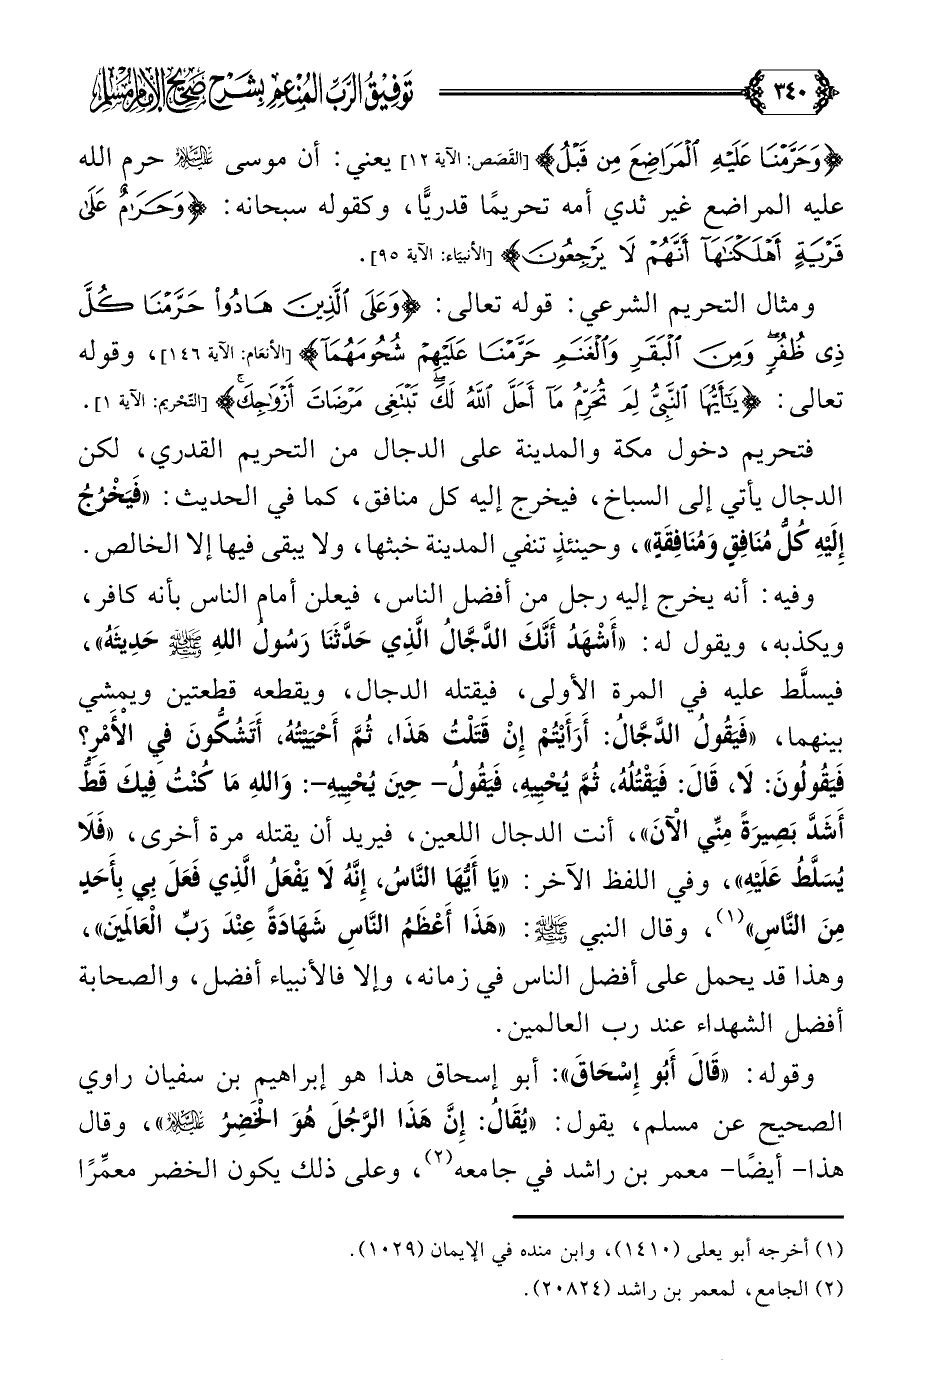 ٣٤٠ توفيق الرب المنعم بشرح صحيح الإمام مسلم
﴿وَحَرَّمْنَا عَلَيْهِ ٱلْمَرَاضِعَ مِن قَبْلُ﴾ [القَصَص: الآية ١٢] يعني: أن موسى عليه السلام حرم الله
عليه المراضع غير ثدي أمه تحريمًا قدريًّا، وكقوله سبحانه: ﴿وَحَرَٰمٌ عَلَىٰ
قَرْيَةٍ أَهْلَكْنَٰهَآ أَنَّهُمْ لَا يَرْجِعُونَ﴾ [الأنبيَاء: الآية ٩٥].
ومثال التحريم الشرعي: قوله تعالى: ﴿وَعَلَى ٱلَّذِينَ هَادُوا۟ حَرَّمْنَا كُلَّ
ذِى ظُفُرٍۖ وَمِنَ ٱلْبَقَرِ وَٱلْغَنَمِ حَرَّمْنَا عَلَيْهِمْ شُحُومَهُمَآ﴾ [الأنعَام: الآية ١٤٦]، وقوله
تعالى: ﴿يَٰٓأَيُّهَا ٱلنَّبِىُّ لِمَ تُحَرِّمُ مَآ أَحَلَّ ٱللَّهُ لَكَۖ تَبْتَغِى مَرْضَاتَ أَزْوَٰجِكَۚ﴾ [التّحْريم: الآية ١].
فتحريم دخول مكة والمدينة على الدجال من التحريم القدري، لكن
الدجال يأتي إلى السباخ، فيخرج إليه كل منافق، كما في الحديث: «فَيَخْرُجُ
إِلَيْهِ كُلُّ مُنَافِقٍ وَمُنَافِقَةٍ»، وحينئذٍ تنفي المدينة خبثها، ولا يبقى فيها إلا الخالص.
وفيه: أنه يخرج إليه رجل من أفضل الناس، فيعلن أمام الناس بأنه كافر،
ويكذبه، ويقول له: «أَشْهَدُ أَنَّكَ الدَّجَّالُ الَّذِي حَدَّثَنَا رَسُولُ اللهِ ﷺ حَدِيثَهُ»،
فيسلَّط عليه في المرة الأولى، فيقتله الدجال، ويقطعه قطعتين ويمشي
بينهما، «فَيَقُولُ الدَّجَّالُ: أَرَأَيْتُمْ إِنْ قَتَلْتُ هَذَا، ثُمَّ أَحْيَيْتُهُ، أَتَشُكُّونَ فِي الْأَمْرِ؟
فَيَقُولُونَ: لَا، قَالَ: فَيَقْتُلُهُ، ثُمَّ يُحْيِيهِ، فَيَقُولُ- حِينَ يُحْيِيهِ-: وَاللهِ مَا كُنْتُ فِيكَ قَطُّ
أَشَدَّ بَصِيرَةً مِنِّي الْآنَ»، أنت الدجال اللعين، فيريد أن يقتله مرة أخرى، «فَلَا
يُسَلَّطُ عَلَيْهِ»، وفي اللفظ الآخر: «يَا أَيُّهَا النَّاسُ، إِنَّهُ لَا يَفْعَلُ الَّذِي فَعَلَ بِي بِأَحَدٍ
مِنَ النَّاسِ»(١)، وقال النبي ﷺ: «هَذَا أَعْظَمُ النَّاسِ شَهَادَةً عِنْدَ رَبِّ الْعَالَمِينَ»،
وهذا قد يحمل على أفضل الناس في زمانه، وإلا فالأنبياء أفضل، والصحابة
أفضل الشهداء عند رب العالمين.
وقوله: «قَالَ أَبُو إِسْحَاقَ»: أبو إسحاق هذا هو إبراهيم بن سفيان راوي
الصحيح عن مسلم، يقول: «يُقَالُ: إِنَّ هَذَا الرَّجُلَ هُوَ الْخَضِرُ عليه السلام»، وقال
هذا- أيضًا- معمر بن راشد في جامعه(٢)، وعلى ذلك يكون الخضر معمَّرًا
(١) أخرجه أبو يعلى (١٤١٠)، وابن منده في الإيمان (١٠٢٩).
(٢) الجامع، لمعمر بن راشد (٢٠٨٢٤).